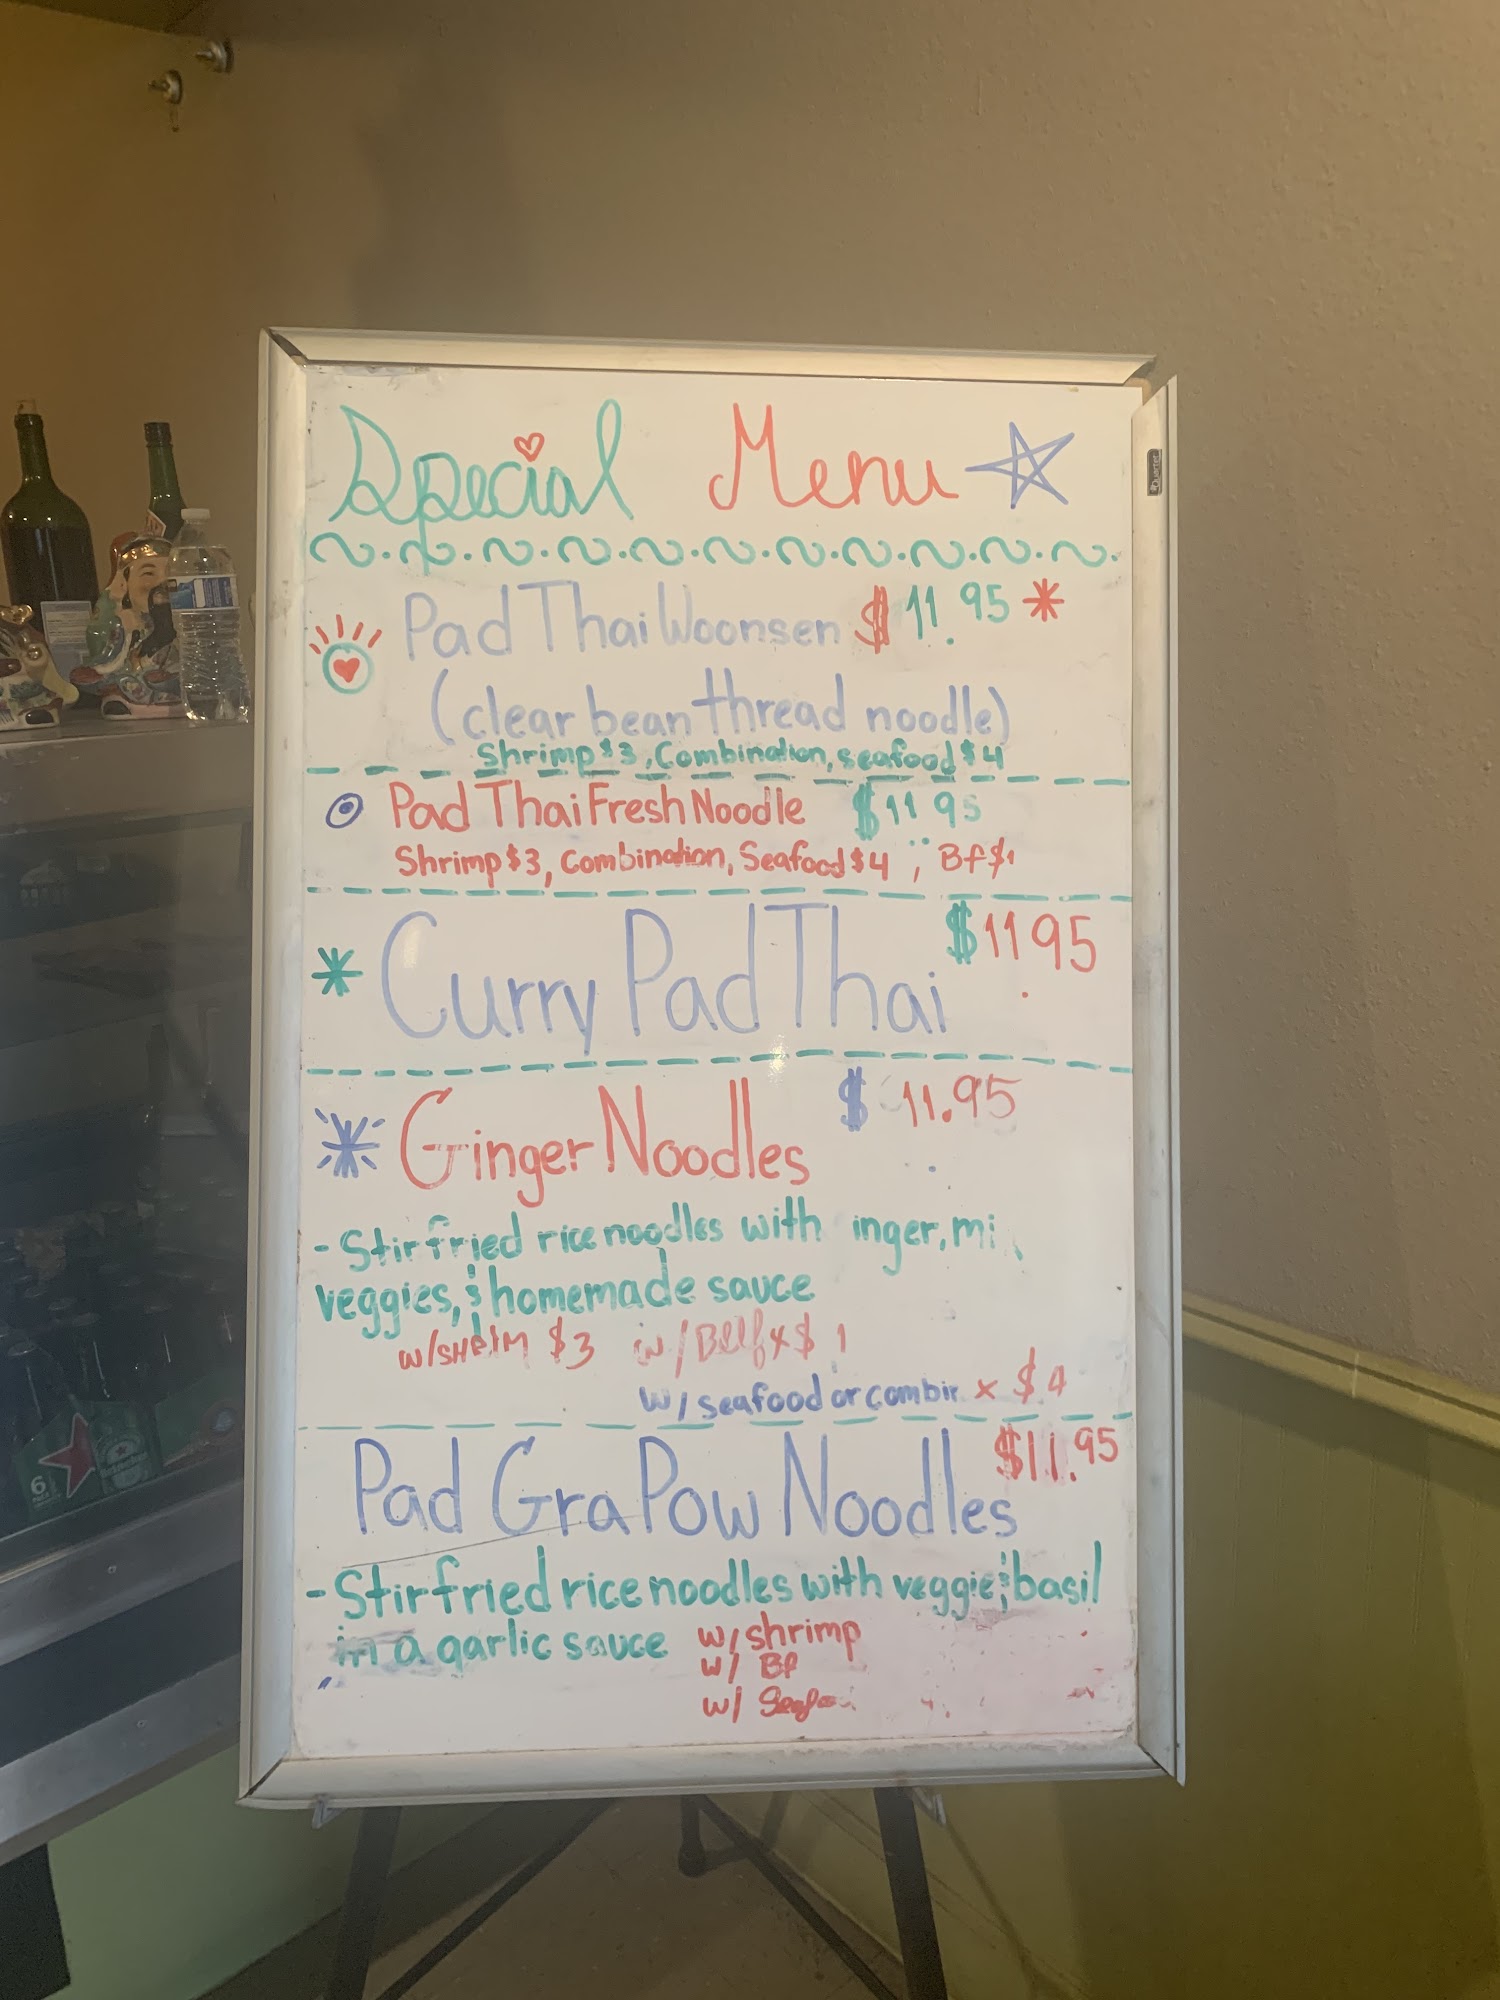 Special Menu
Pad Thai Woonsen $11.95 *
(clear bean thread noodle)
Shrimp $3, Combination, seafood $4
Pad Thai Fresh Noodle $11 95
Shrimp $3, Combination, Seafood $4 ; Bf $1
* Curry Pad Thai $11.95
Ginger Noodles $ 11.95
- Stir fried rice noodles with inger, mi
veggies, & homemade sauce
w/ $3 w/ Beef x $ 1
w/ seafood or combin x $4
Pad Gra Pow Noodles $11.95
- Stir fried rice noodles with veggie & basil
in a garlic sauce w/ shrimp
w/ Bf
w/
Quartet
6
Heineken